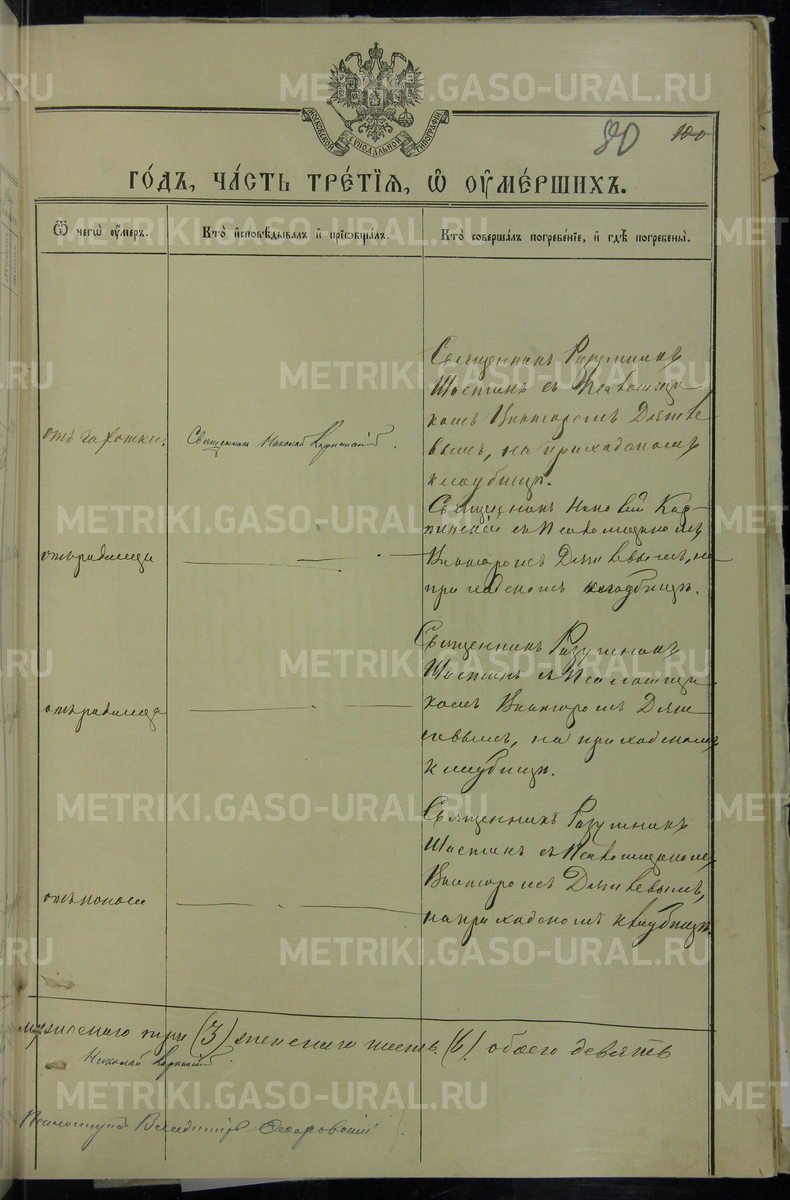 МОСКОВСКОЙ СѴНОДАЛЬНОЙ ТИПОГРАФІИ
80 100
ГО́ДЪ, ЧА́СТЬ ТРЕ́ТІѦ, Ѽ ОУМЕ́РШИХЪ.
Ѿ чегѡ̀ оу́меръ.
Кто̀ и҆сповѣ́дывалъ и҆ прїѡбща́лъ.
Кто̀ соверша́лъ погребе́нїе, и҆ гдѣ̀ погребены̀.
отъ чахотки.
Священник Николай Карпинскій.
Священникъ Разумникъ
Шастинъ съ Псаломщи
комъ Викторомъ
на приходскомъ
кладбищѣ.
Священникъ Николай Кар-
пинскій съ Псаломщикомъ
Викторомъ на
приходскомъ кладбищѣ.
отъ родимца
Священникъ Разумникъ
Шастинъ съ Псаломщи
комъ Викторомъ
на приходскомъ
кладбищѣ.
отъ родимца
Священникъ Разумникъ
Шастинъ съ Псаломщикомъ
Викторомъ
на приходскомъ кладбищѣ.
отъ поноса
мужескаго три (3) женскаго шесть (6) обоего девять
Николай Карпинскій
Псаломщикъ Владиміръ
METRIKI.GASO-URAL.RU